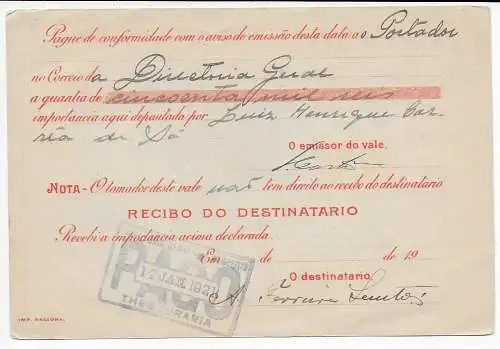 Pague de conformidade com o aviso de emissão desta data a o Portador
no Correio da Directoria Geral
a quantia de cincoenta mil reis
importância aqui depositada por Luiz Henrique Cor-
rêa de Sá
O emissor do vale.
NOTA - O tomador deste vale não tem direito ao recibo do destinatario
RECIBO DO DESTINATARIO
Recebi a importância acima declarada.
PAGO
17 JAN. 1921
THESOURARIA
Em de de 19
O destinatario.
A. Ferreira Santos
IMP. NACIONAL.